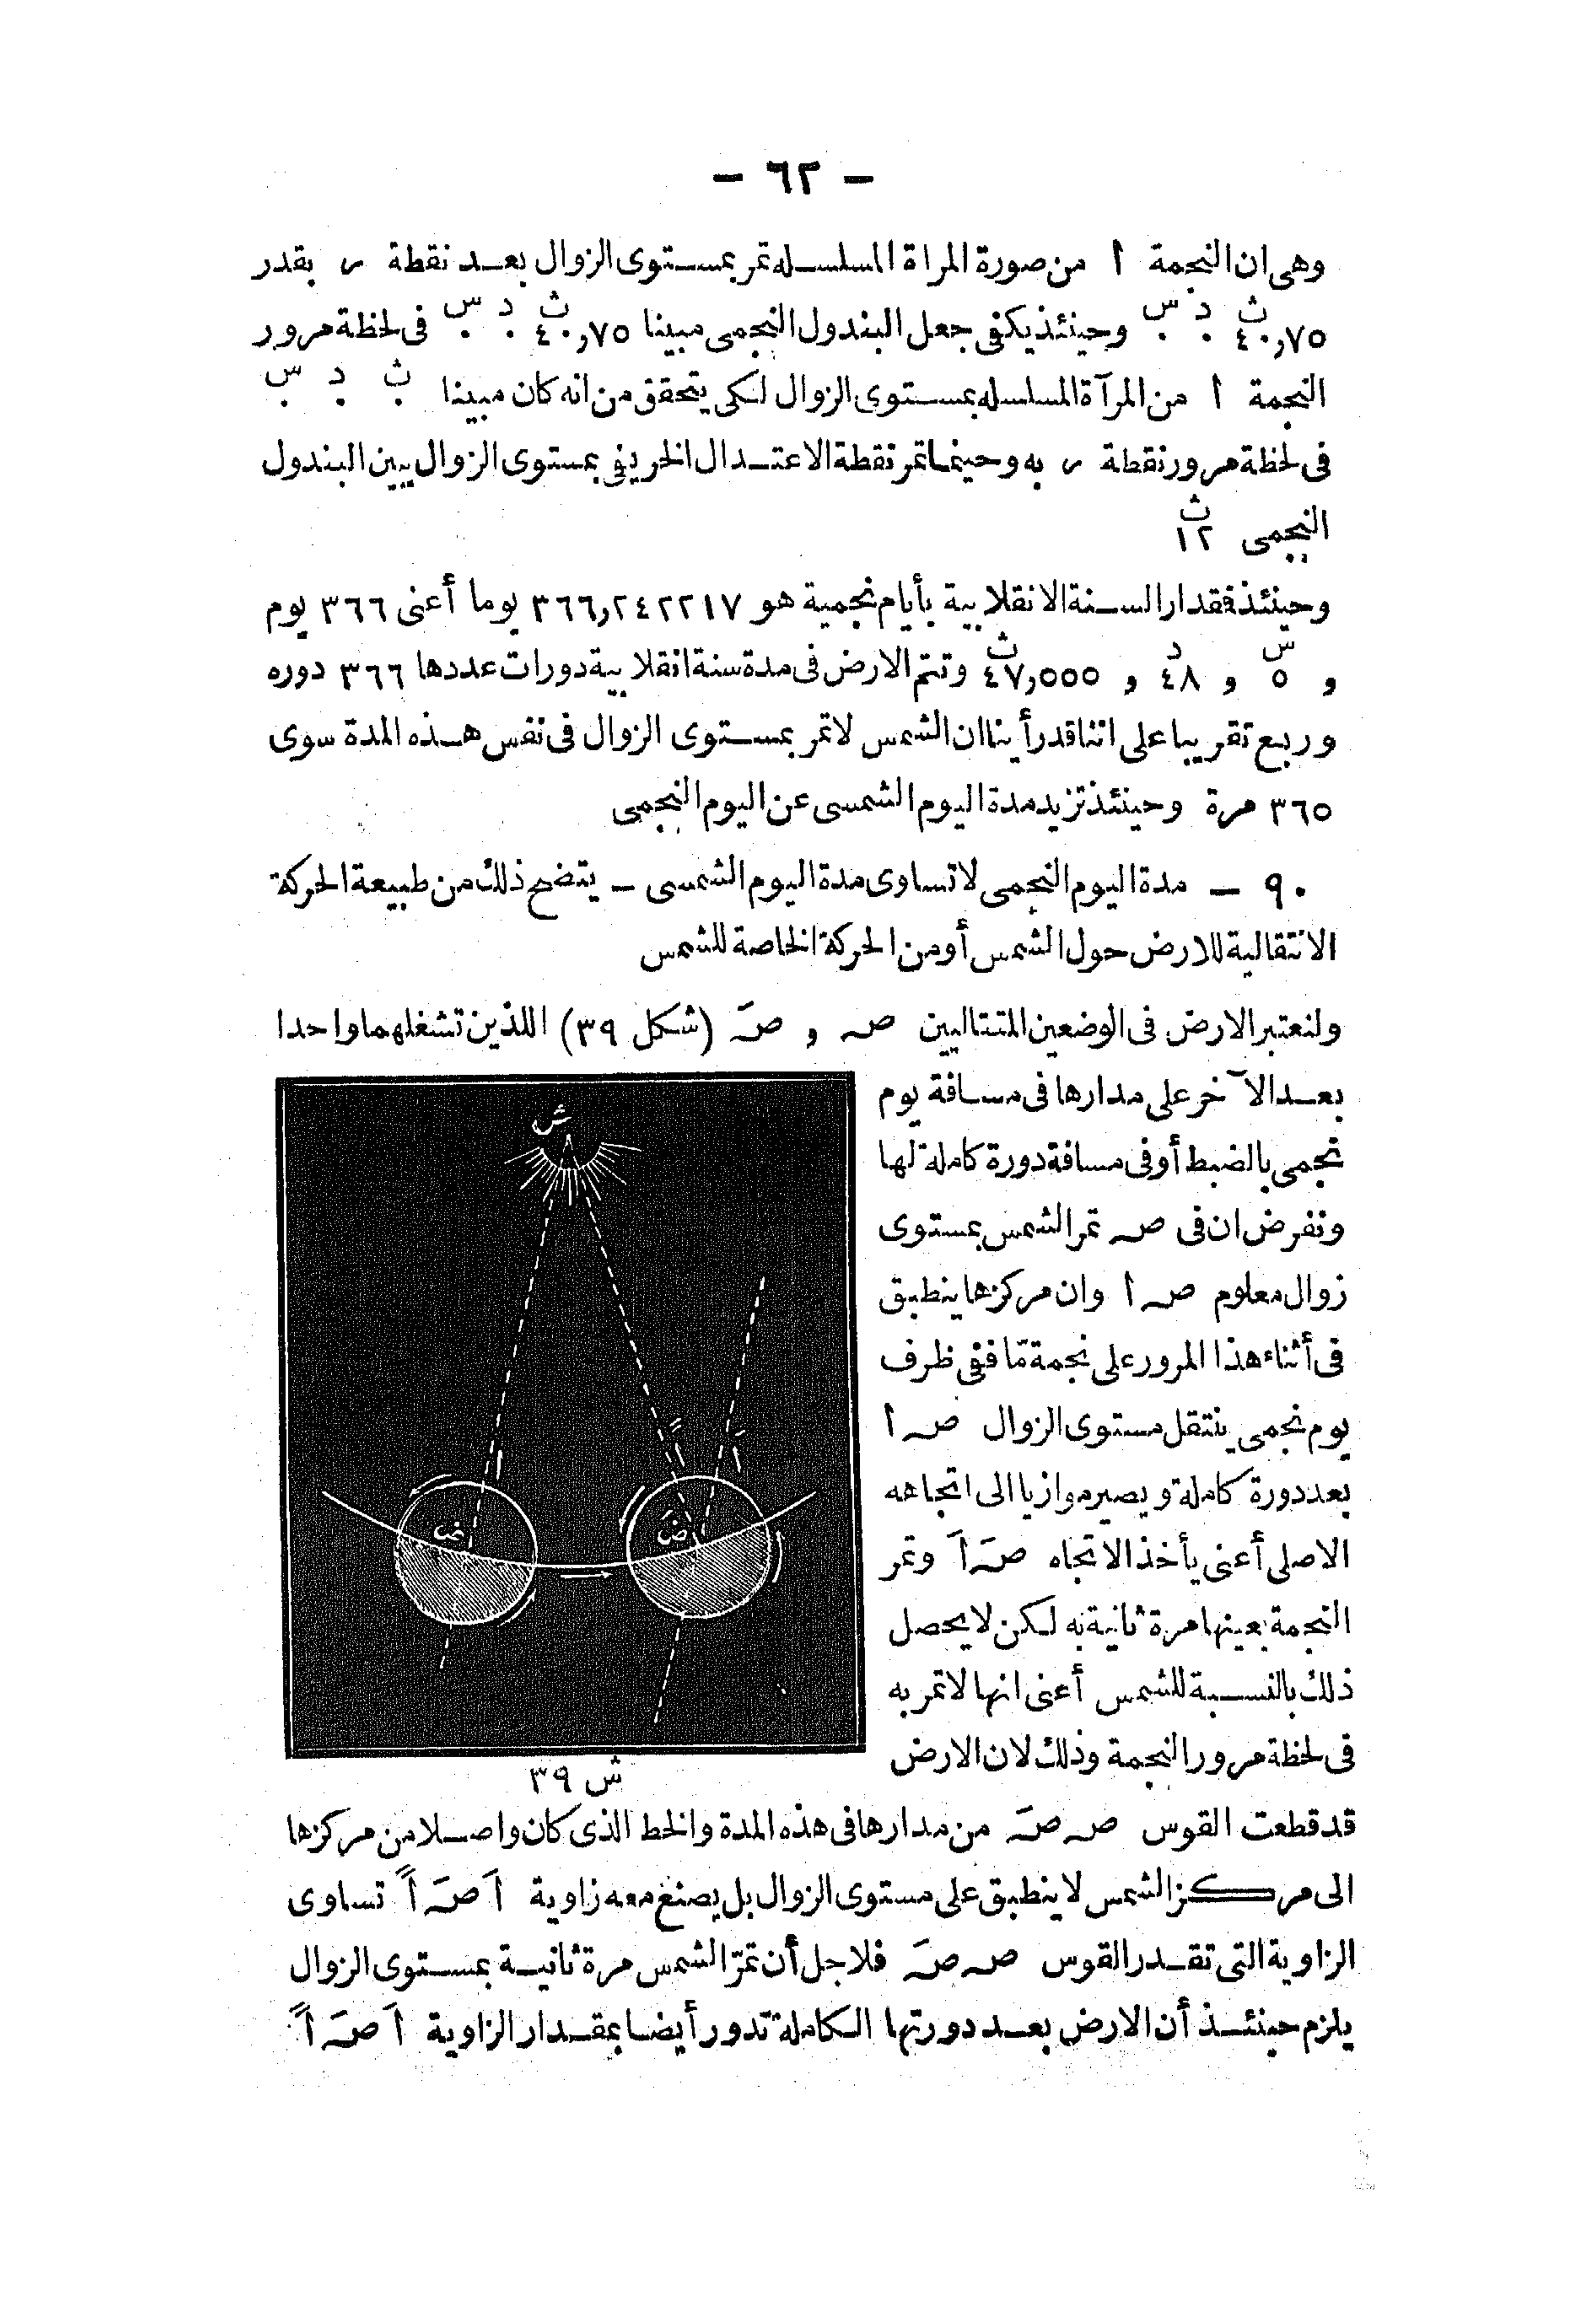 - ٦٢ -
وهى ان النجمة ا من صورة المراة المسلسله تمر بمستوى الزوال بعد نقطة ر بقدر
س د ث
٠ ٠ ٤٠,٧٥ وحينئذ يكفى جعل البندول النجمى مبينا ٤٠,٧٥ ٠ ٠ فى لحظة مرور
النجمة ا من المرآة المسلسله بمستوى الزوال لكى يتحقق من انه كان مبينا ٠ ٠ ٠
فى لحظة مرور نقطة ر به وحينما تمر نقطة الاعتدال الخريفى بمستوى الزوال يبين البندول
النجمى ١٢
وحينئذ فقدار السنة الانقلابية بأيام نجمية هو ٣٦٦,٢٤٢٢١٧ يوما أعنى ٣٦٦ يوم
و ٥ س و ٤٨ د و ٤٧,٥٥٥ ث وتتم الارض فى مدة سنة انقلابية دورات عددها ٣٦٦ دوره
وربع تقريبا على اننا قد رأينا ان الشمس لا تمر بمستوى الزوال فى نفس هذه المدة سوى
٣٦٥ مرة وحينئذ تزيد مدة اليوم الشمسى عن اليوم النجمى
٩٠ - مدة اليوم النجمى لا تساوى مدة اليوم الشمسى - يتضح ذلك من طبيعة الحركة
الانتقالية للارض حول الشمس أو من الحركة الخاصة للشمس
ولنعتبر الارض فى الوضعين المتتاليين صه و صهَ (شكل ٣٩) اللذين تشغلهما واحدا
بعد الآخر على مدارها فى مسافة يوم
نجمى بالضبط أو فى مسافة دورة كاملة لها
ونفرض ان فى صه تمر الشمس بمستوى
زوال معلوم صه ا وان مركزها ينطبق
فى أثناء هذا المرور على نجمة مّا ففى ظرف
يوم نجمى ينتقل مستوى الزوال صه ا
بعد دورة كاملة ويصير موازيا الى اتجاهه
الاصلى أعنى يأخذ الاتجاه صهَ اَ وتمر
النجمة بعينها مرة ثانية به لكن لا يحصل
ذلك بالنسبة للشمس أعنى انها لا تمر به
فى لحظة مرور النجمة وذلك لان الارض
ش
ض
ضَ
ش ٣٩
قد قطعت القوس صه صهَ من مدارها فى هذه المدة والخط الذى كان واصلا من مركزها
الى مركز الشمس لا ينطبق على مستوى الزوال بل يصنع معه زاوية اَ صهَ اً تساوى
الزاوية التى تقدر القوس صه صهَ فلاجل أن تمرّ الشمس مرة ثانية بمستوى الزوال
يلزم حينئذ أن الارض بعد دورتها الكاملة تدور أيضا بمقدار الزاوية اَ صهَ اً